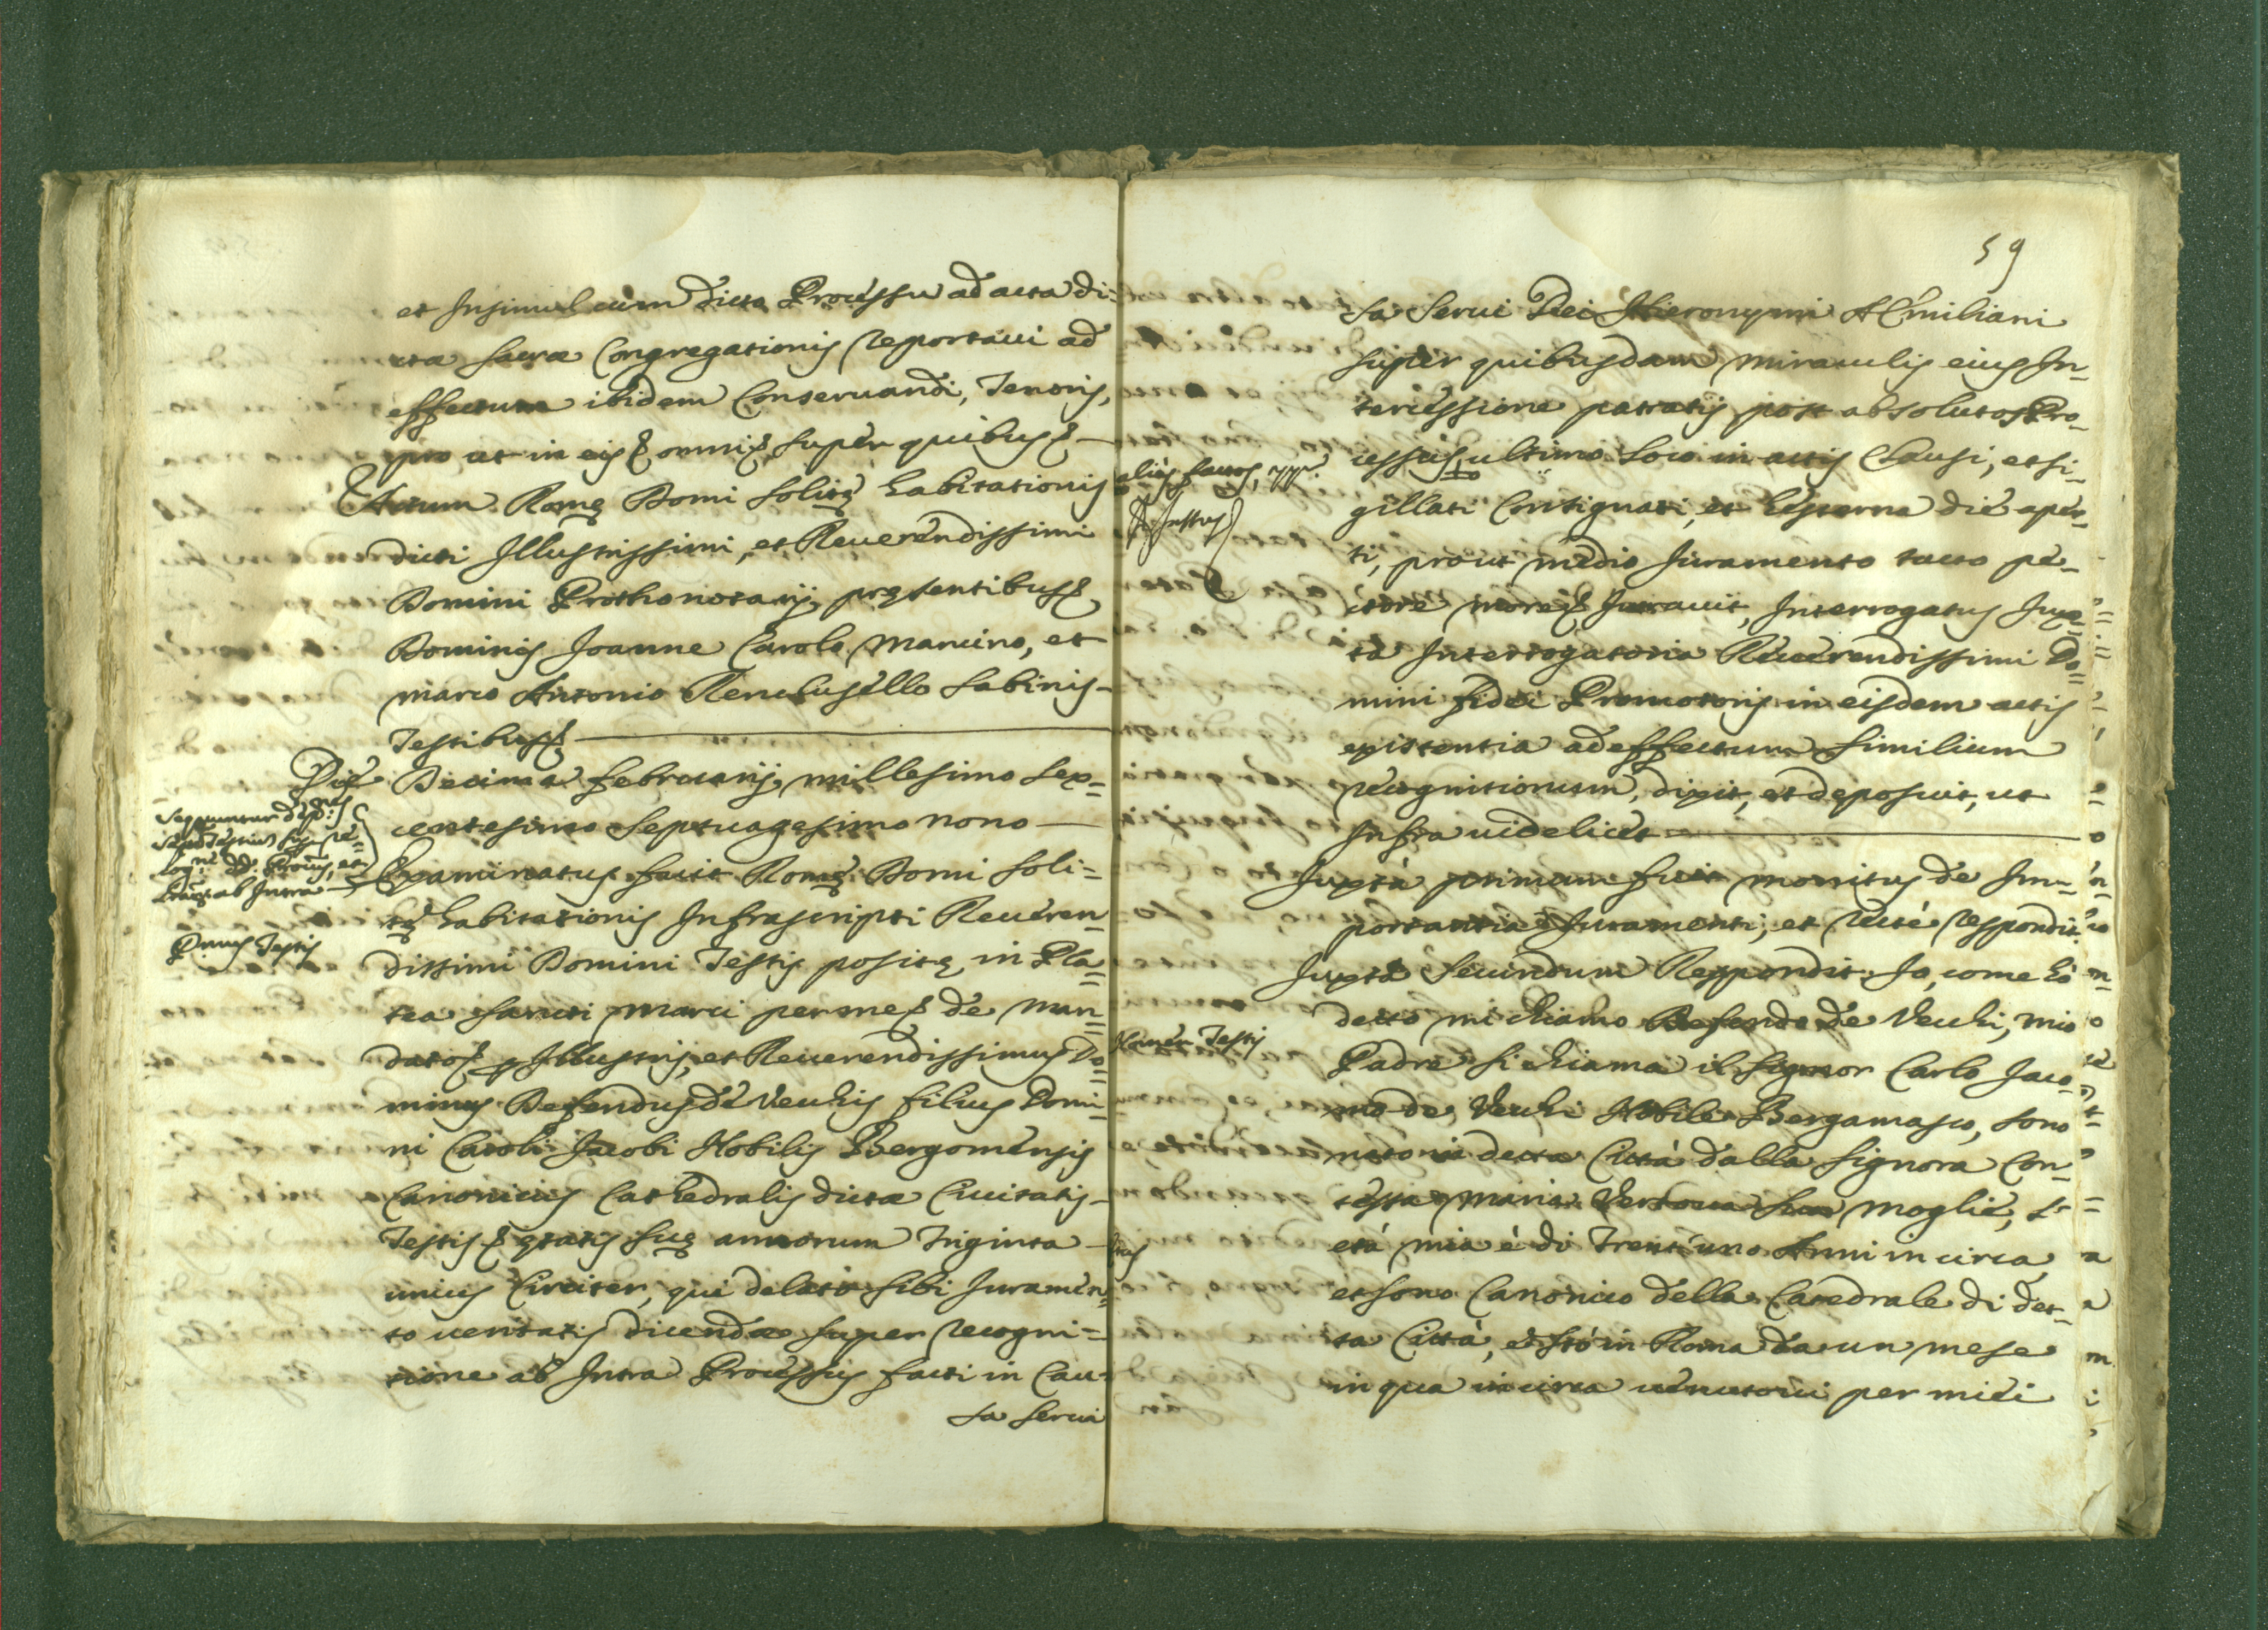 et Insimul cum dicto Processu ad acta di-
ctæ sacræ Congregationis reportavi ad
effectum ibidem Conseruandi, Tenoris,
pro ut in eis & omnis super quibus &
Actum Romę Domi solitę habitationis
dicti Illustrissimi, et Reuerendissimi
Domini Prothonotarij, pręsentibus &
Dominis Joanne Carolo Mancino, et
Marco Antonio Sabinis
Testibus &
Die Decima februarij millesimo sex=
centesimo septuagesimo nono
Sequuntur
ab Intra
Examinatus fuit Romę Domi soli=
tę habitationis Infrascripti Reueren
dissimi Domini Testis positę in Pla=
Primus Testis
tea sancti Marci per me & de man=
dato & Illustris, et Reuerendissimus Do=
minus Defendus de Vechis filius Domi
ni Caroli Jacobi Nobilis Bergomensis
Canonicus Cathedralis dictæ Ciuitatis
Testis & ętatis suę annorum Triginta
unius Circiter, qui delato sibi Juramen=
to ueritatis dicendæ super recogni=
tione ab Intra Processus facti in Cau=
sa serui
59
sa Serui Dei Hieronymi Æmiliani
super quibusdam miraculis eius In=
tercessione patratis post absolutos Pro=
cessus ultimo loco in actis Clausi, et si=
alios factos
gillati Consignati, et hesterna die aper=
ti, prout medio Juramento tacto pe=
ctore more & Jurauit, Interrogatus Jux=
ta Interrogatoria Reuerendissimi Do=
mini fidei Promotoris in eisdem actis
existentia ad effectum similium
recognitionum, dixit, et deposuit, ut
Infra uidelicet
Juxta primum fuit monitus de Im=
portantia Juramenti, et recte respondit.
Juxta secundum Respondit. Io, come hò
detto mi chiamo Defendo de Vechi, mio
Nomen Testis
Padre si chiama il Signor Carlo Jaco=
mo de Vechi Nobile Bergamasco, sono
nato in detta Città dalla Signora Con=
tessa Maria Vertoua sua moglie, l'
età mia è di Trent'uno Anni in circa
Ætas
et sono Canonico della Catedrale di det=
ta Città, e stò in Roma da un mese
in qua in circa uenutoui per miei